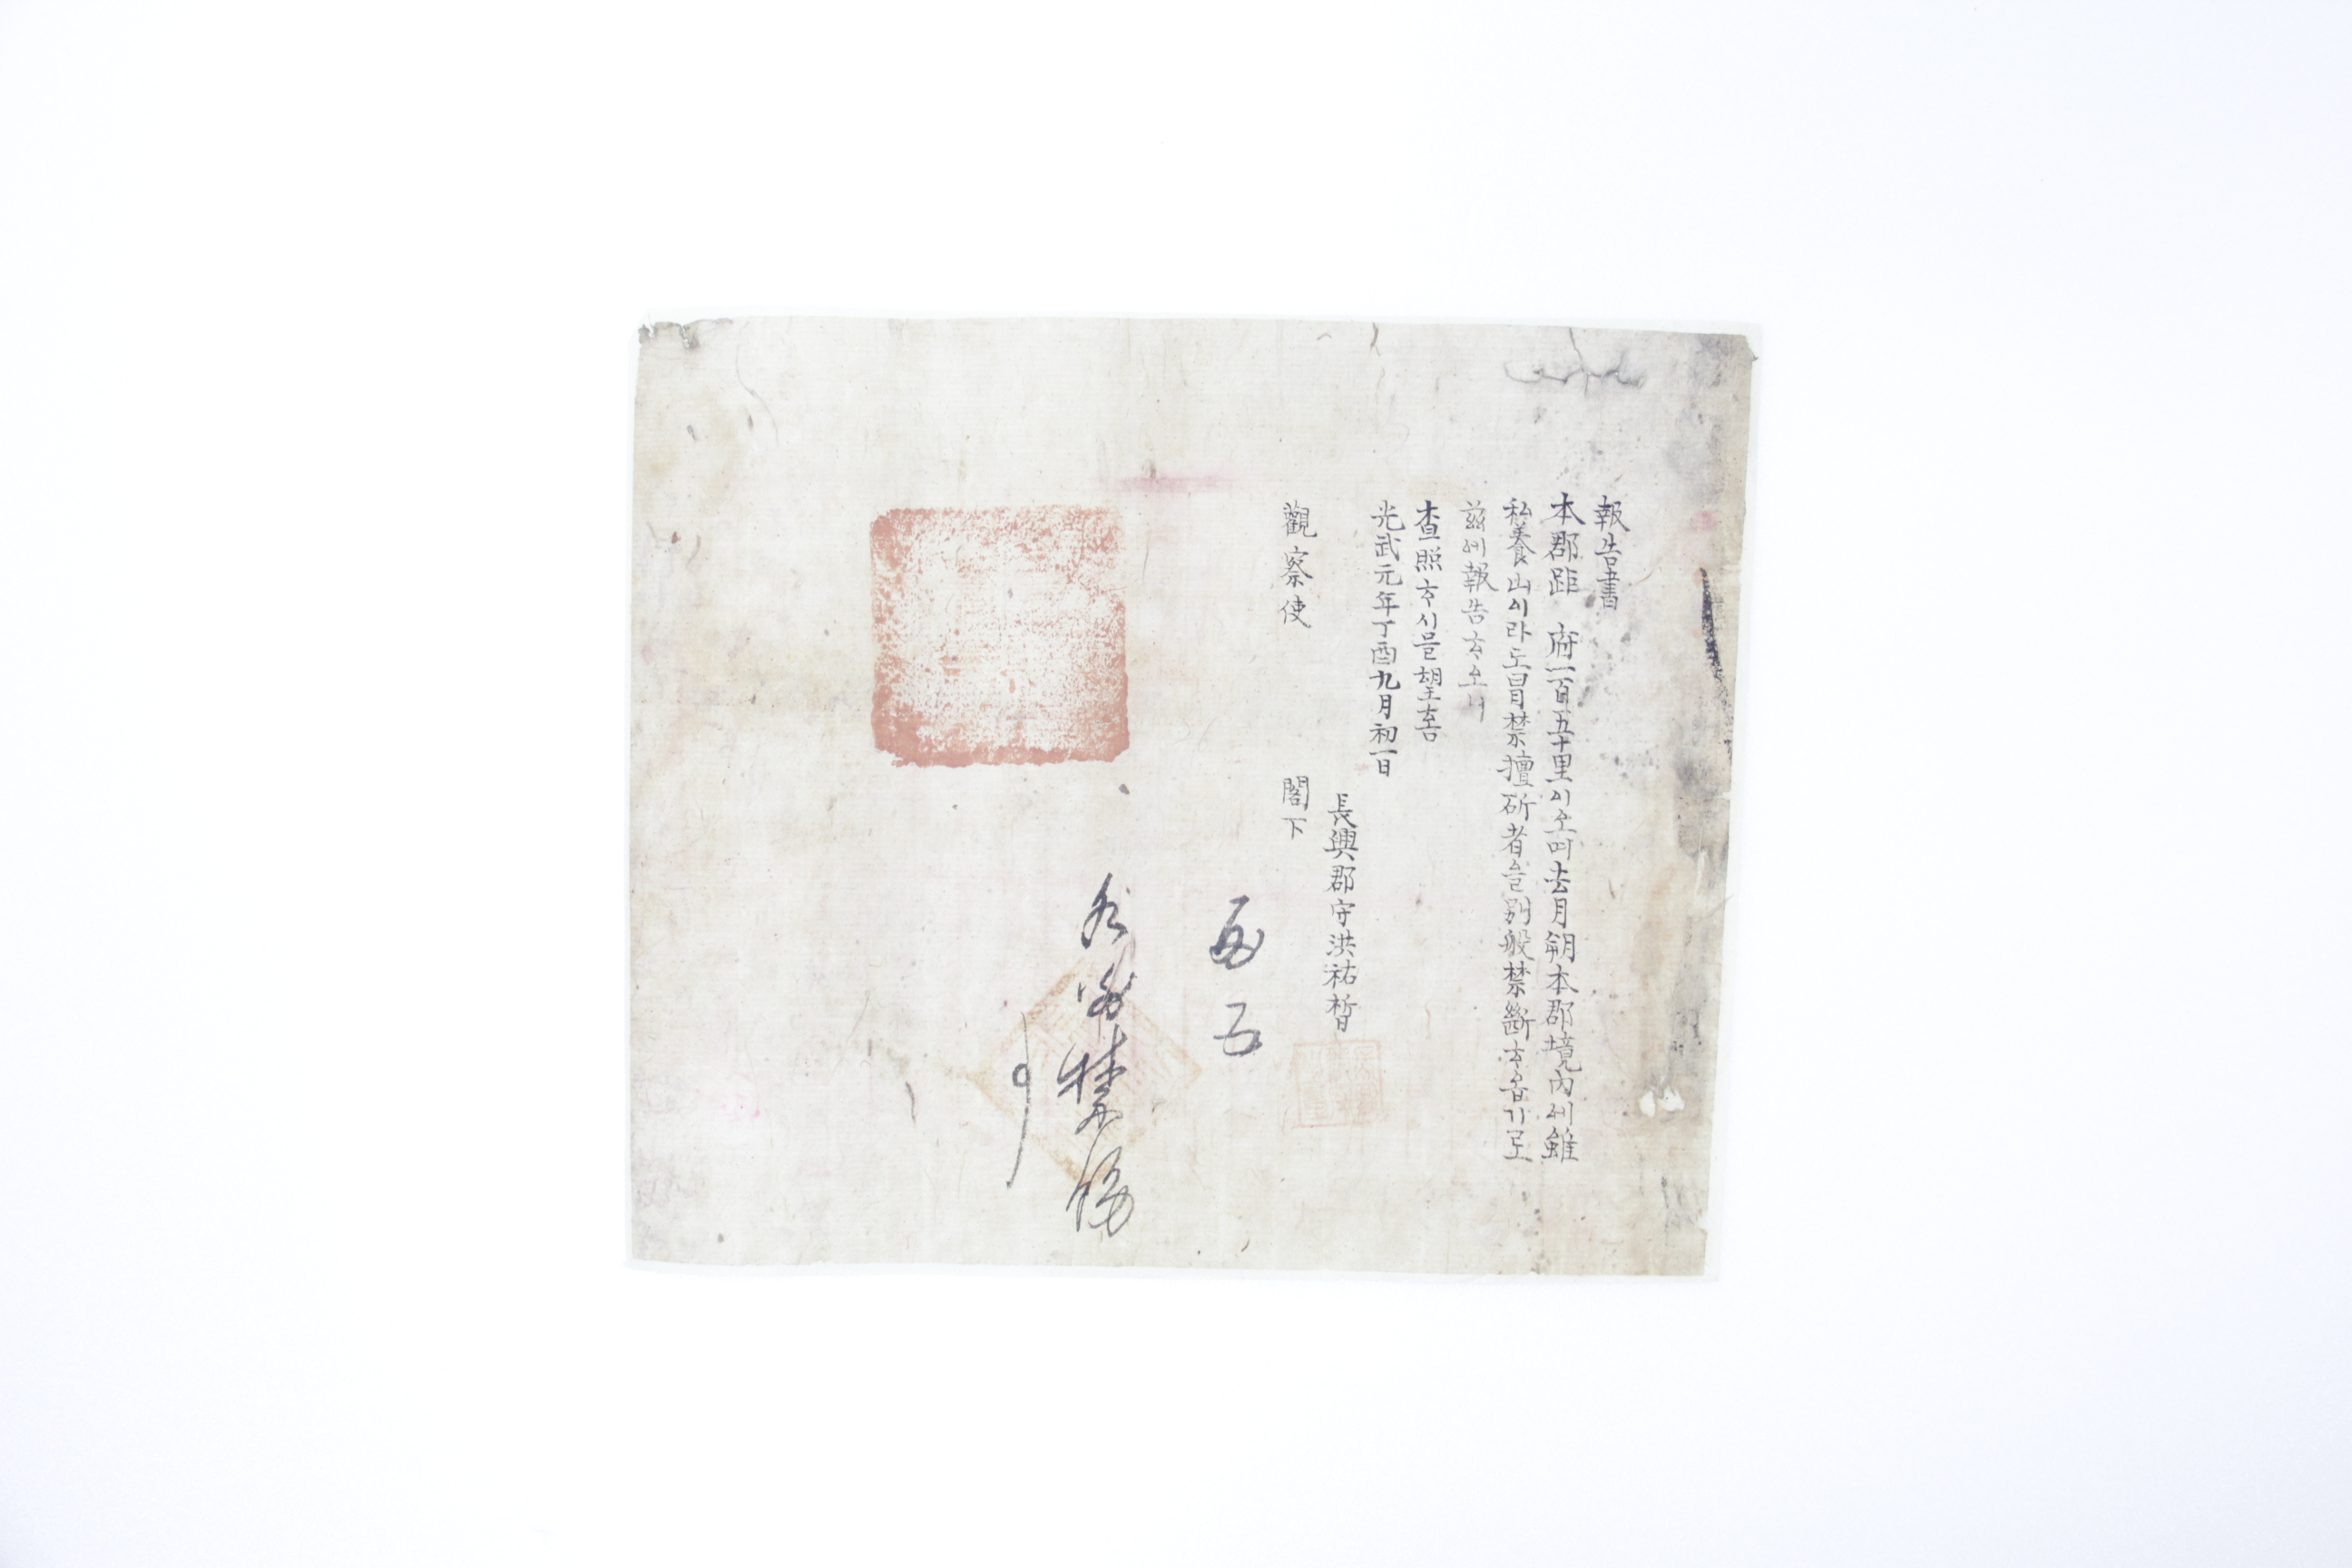 報告書
本郡距 府一百五十里이오며去月朔本郡境內에雖
私養山이라도冒禁擅斫者을別般禁斷ᄒᆞ옵기로
玆에報告ᄒᆞ오니
査照ᄒᆞ시믈望홈
光武元年丁酉九月初一日
長興郡守洪祐晳
觀察使 閣下